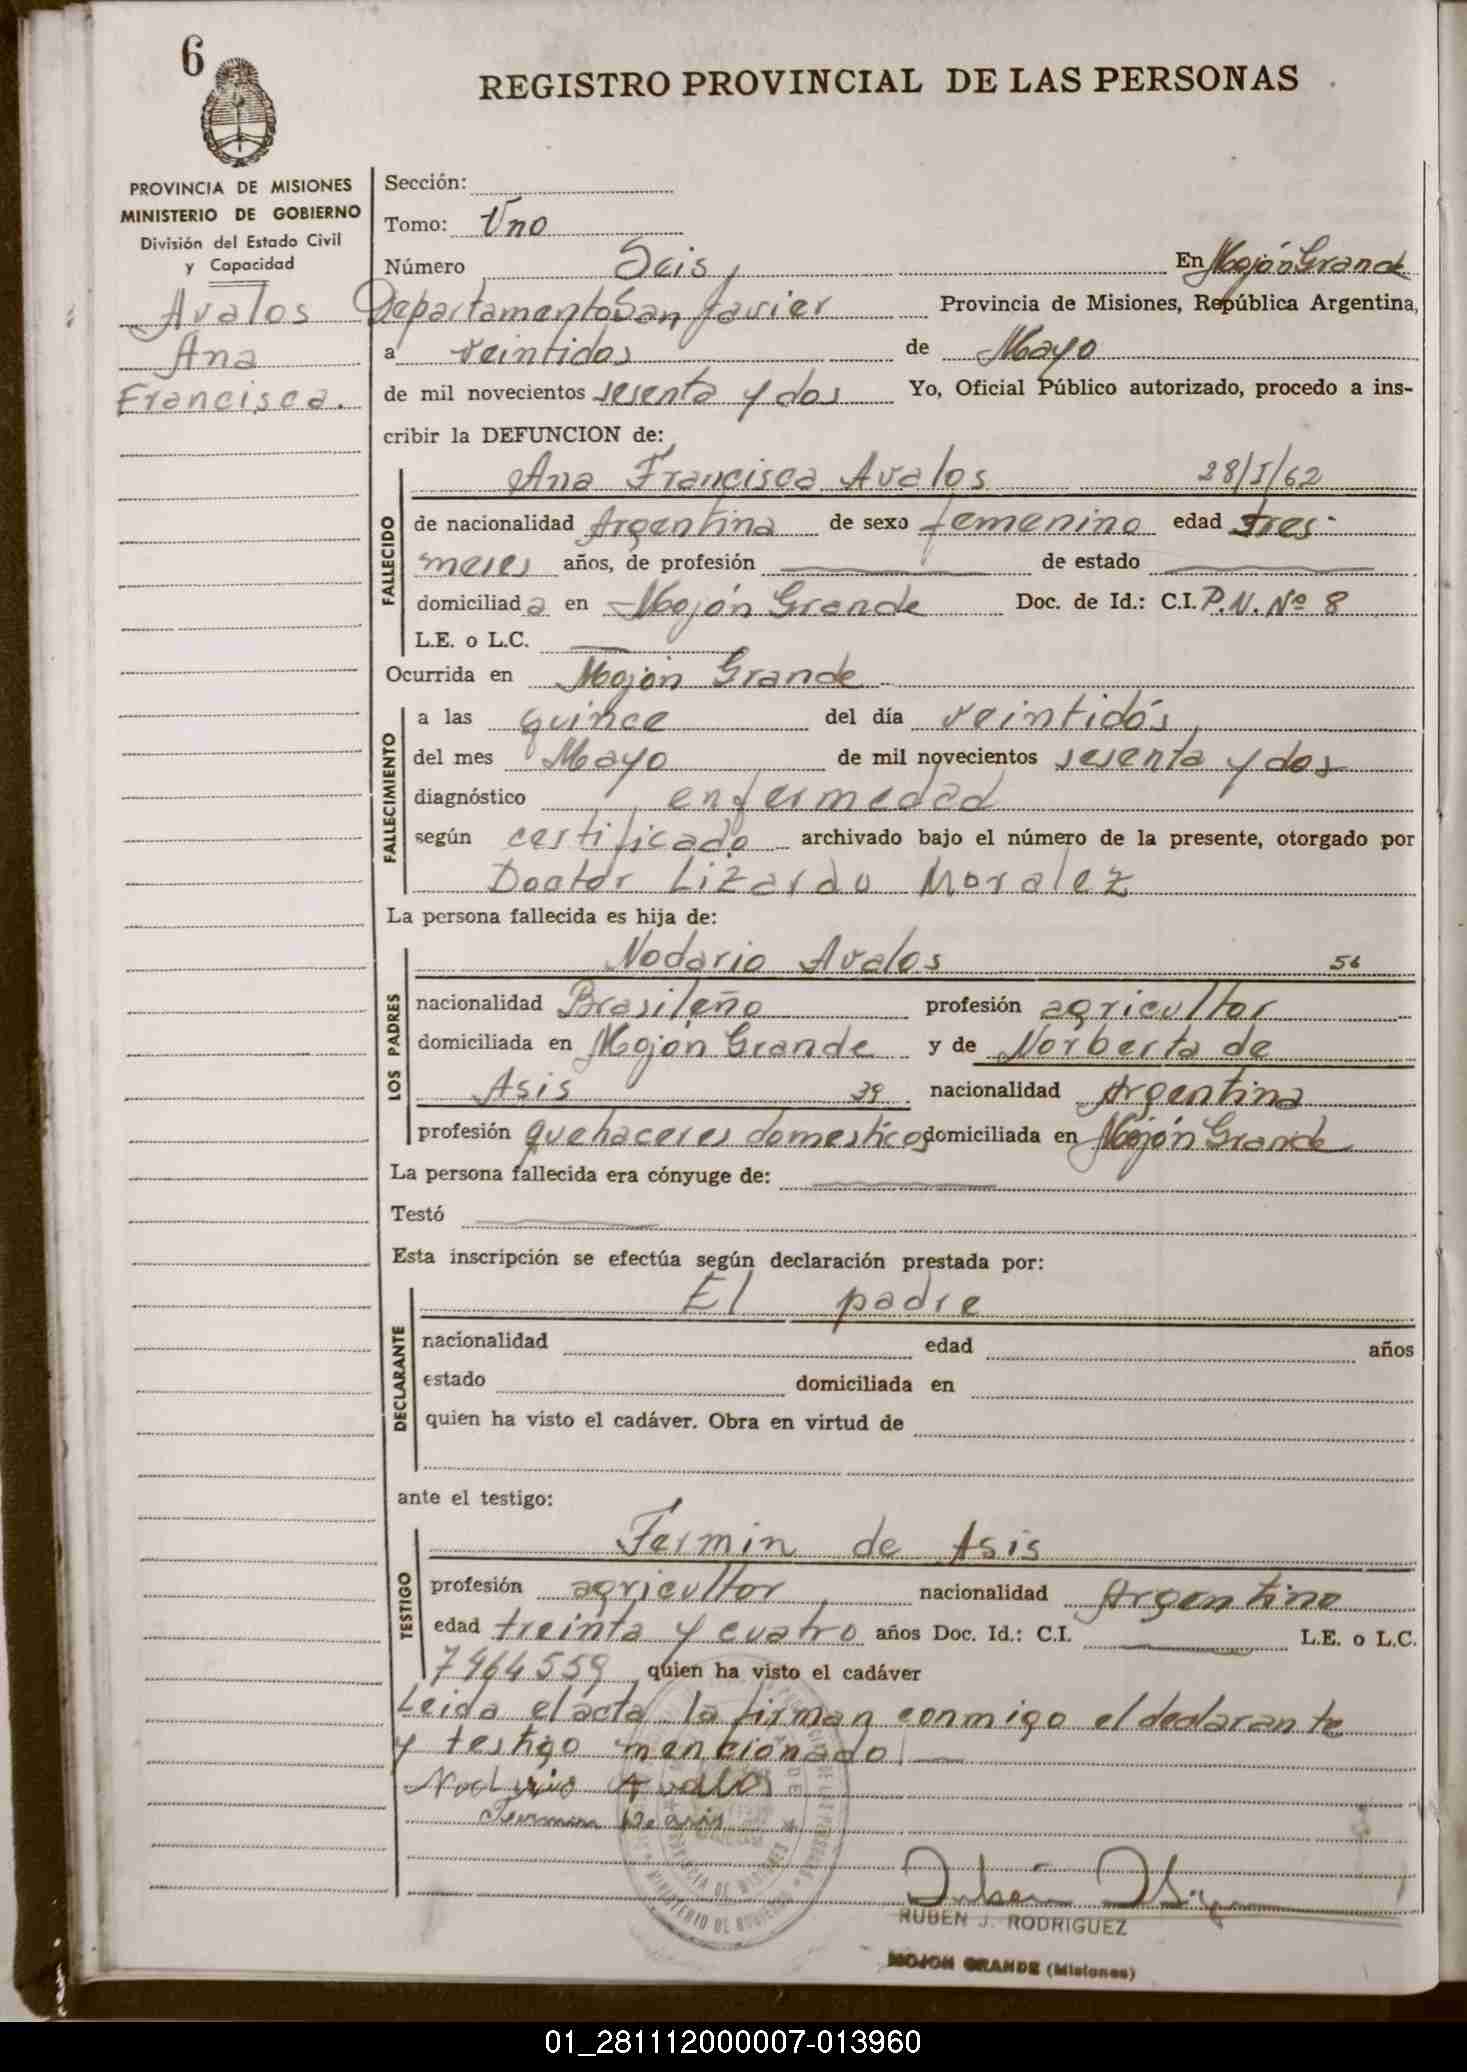 6
REGISTRO PROVINCIAL DE LAS PERSONAS
PROVINCIA DE MISIONES
MINISTERIO DE GOBIERNO
División del Estado Civil
y Capacidad
Avalos
Ana
Francisca.
Sección:
Tomo: Uno
Número Seis, En Mojón Grande
Departamento San Javier Provincia de Misiones, República Argentina,
a veintidos de Mayo
de mil novecientos sesenta y dos Yo, Oficial Público autorizado, procedo a ins-
cribir la DEFUNCION de:
FALLECIDO
Ana Francisca Avalos 28/I/62
de nacionalidad Argentina de sexo femenino edad tres
meses años, de profesión de estado
domiciliada en Mojón Grande Doc. de Id.: C.I. P.N. Nº 8
L.E. o L.C.
Ocurrida en Mojón Grande
FALLECIMIENTO
a las quince del día veintidós
del mes Mayo de mil novecientos sesenta y dos
diagnóstico enfermedad
según certificado archivado bajo el número de la presente, otorgado por
Doctor Lizardo Moralez
La persona fallecida es hija de:
LOS PADRES
Nodario Avalos 56
nacionalidad Brasileño profesión agricultor
domiciliada en Mojón Grande y de Norberta de
Asis 39 nacionalidad Argentina
profesión quehaceres domesticos domiciliada en Mojón Grande
La persona fallecida era cónyuge de:
Testó
Esta inscripción se efectúa según declaración prestada por:
DECLARANTE
El padre
nacionalidad edad años
estado domiciliada en
quien ha visto el cadáver. Obra en virtud de
ante el testigo:
TESTIGO
Fermin de Asis
profesión agricultor nacionalidad Argentino
edad treinta y cuatro años Doc. Id.: C.I. L.E. o L.C.
7464559 quien ha visto el cadáver
Leida el acta la firman conmigo el declarante
y testigo mencionado
Avalos
De asis
PROVINCIA DE MISIONES
MINISTERIO DE GOBIERNO
RUBEN J. RODRIGUEZ
MOJON GRANDE (Misiones)
01_281112000007-013960